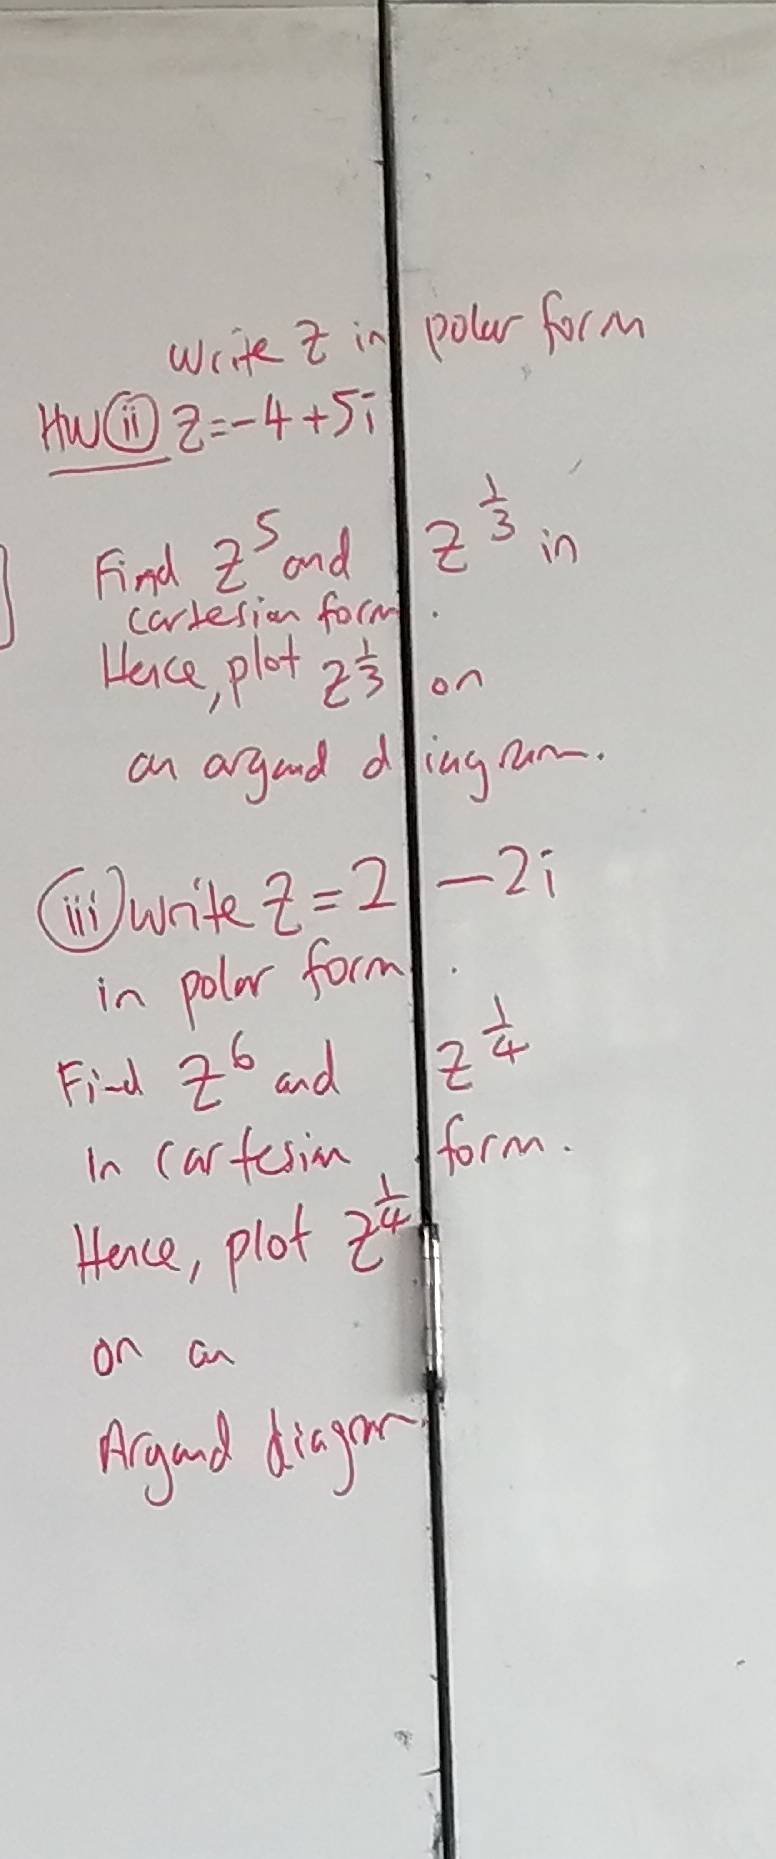 Write z in polar form
HW (ii) z=-4+5i
Find z^5 and z^{1/3} in
cartesian form.
Hence, plot z^{1/3} on
an argand diagram.
(iii) write z=2-2i
in polar form.
Find z^6 and z^{1/4}
In cartesian form.
Hence, plot z^{1/4}
on an
Argand diagram.